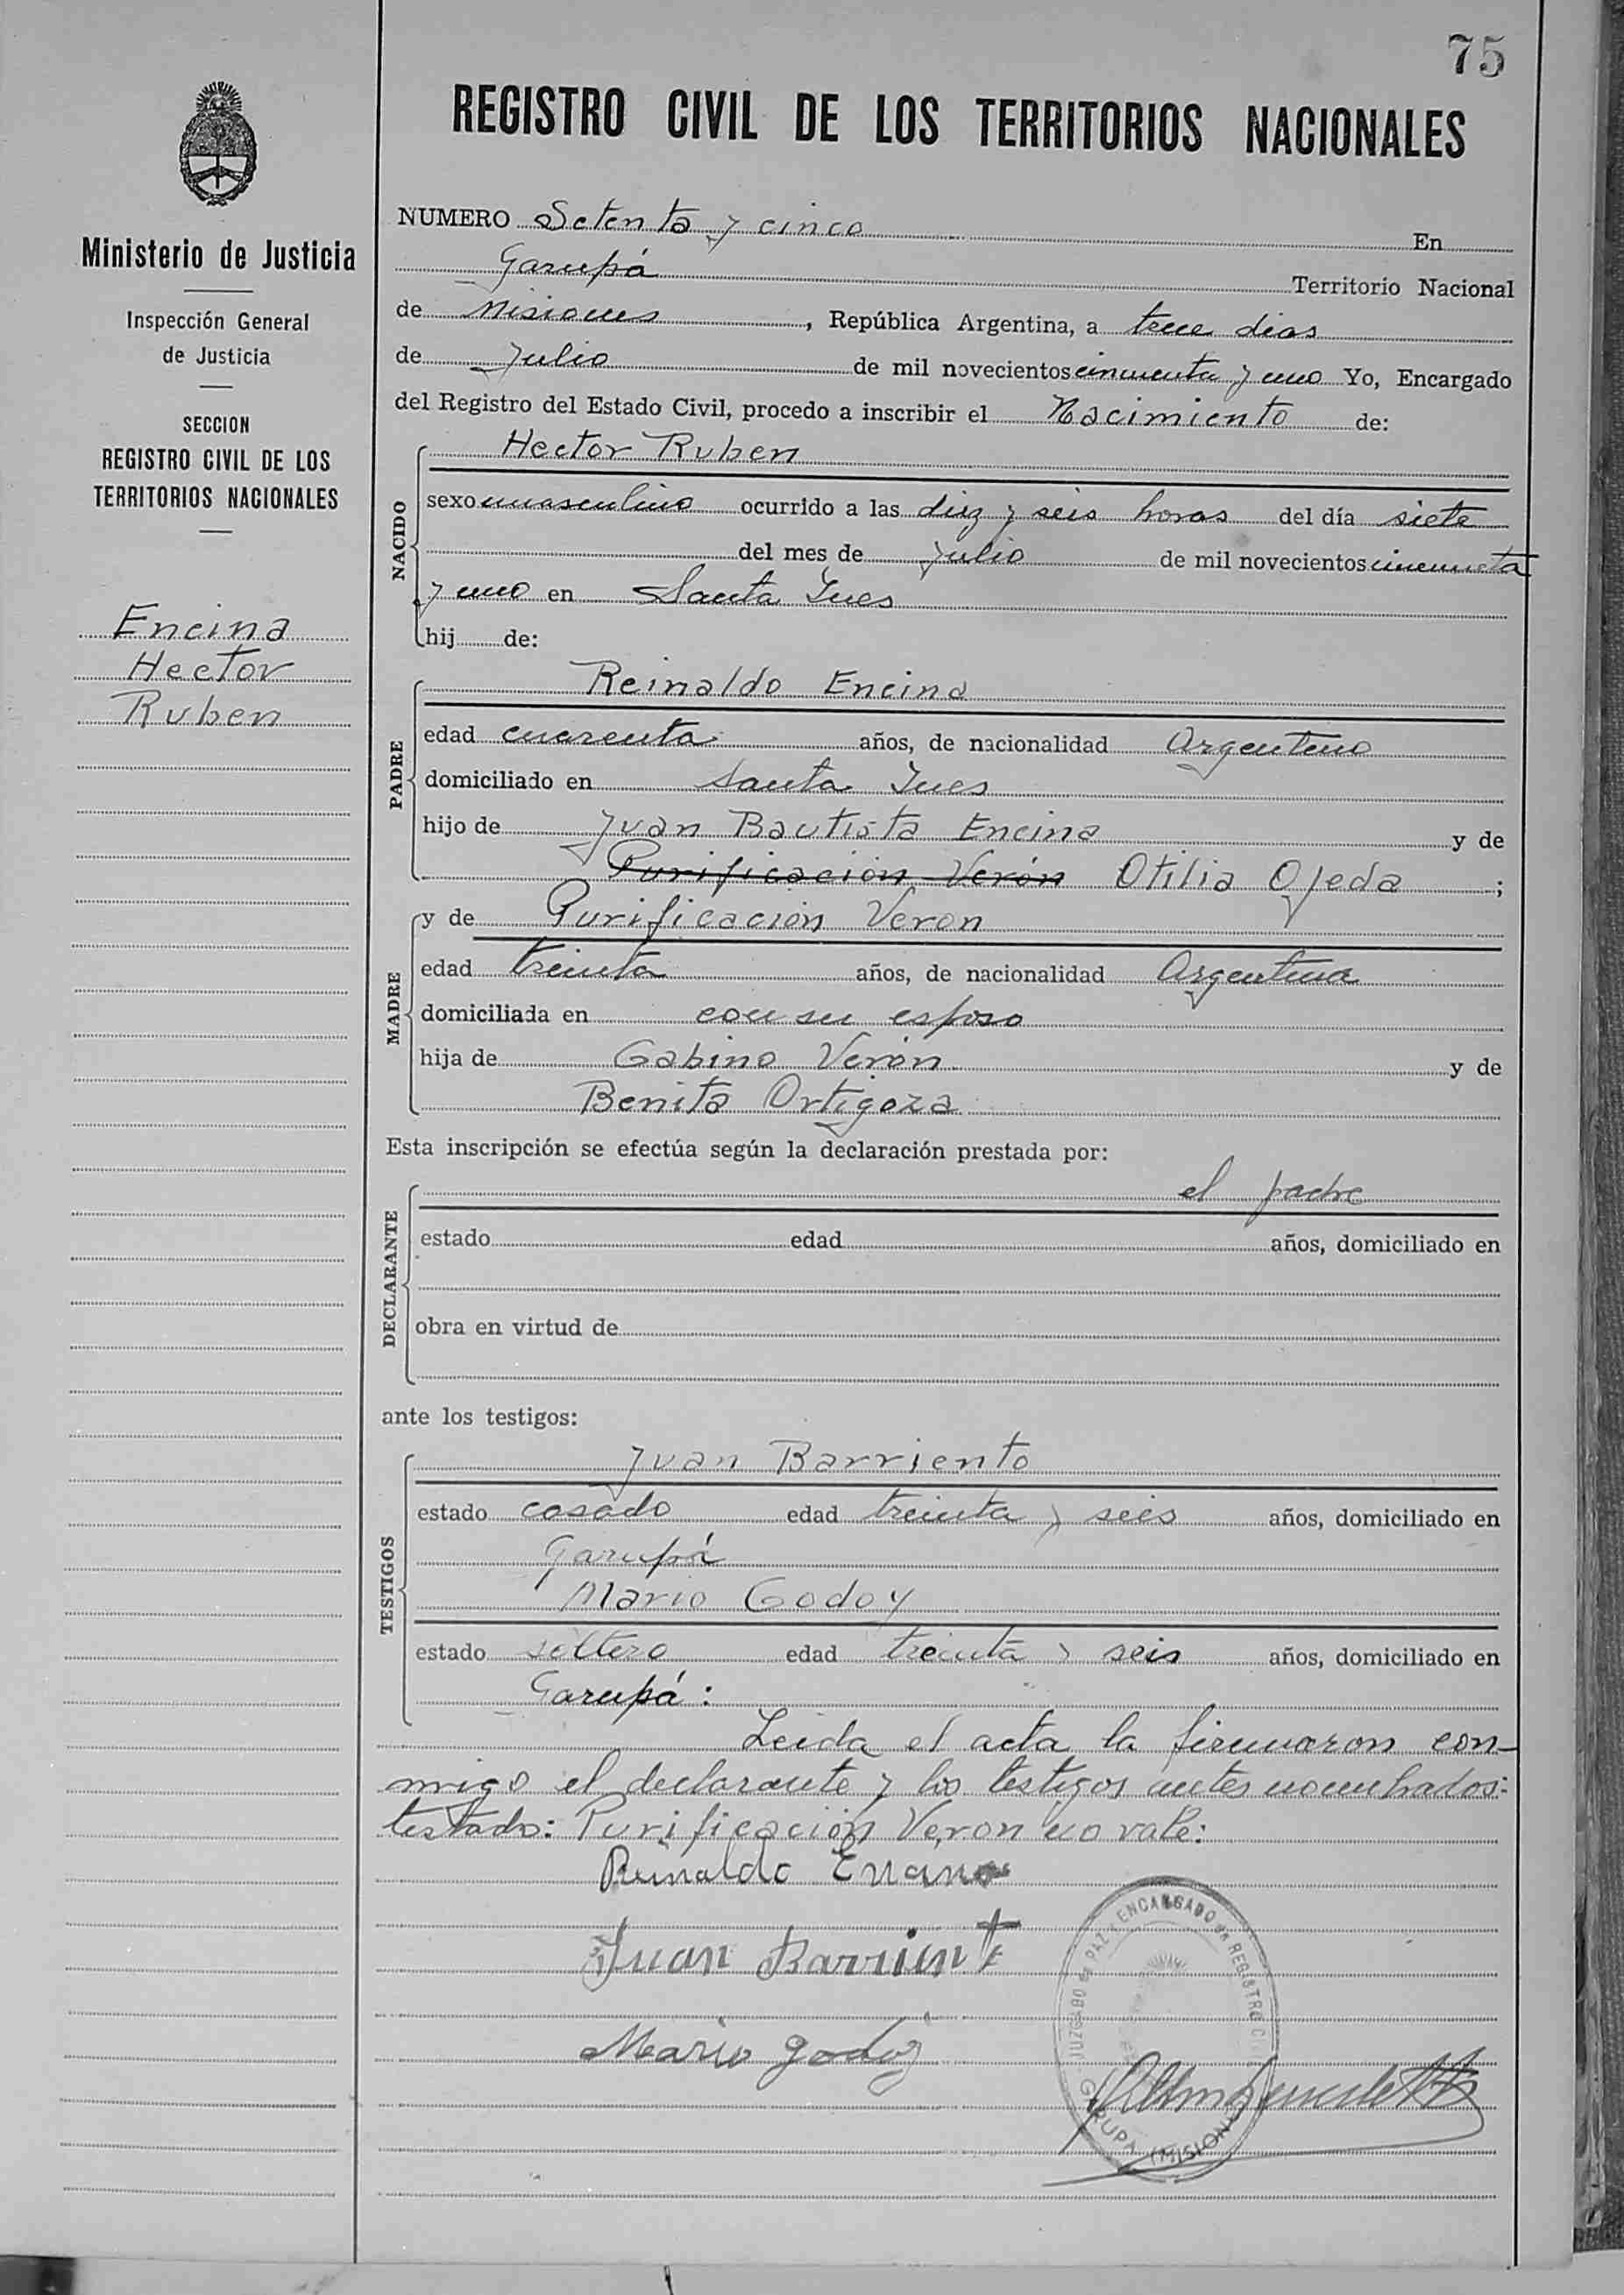 75
REGISTRO CIVIL DE LOS TERRITORIOS NACIONALES
Ministerio de Justicia
Inspección General
de Justicia
SECCION
REGISTRO CIVIL DE LOS
TERRITORIOS NACIONALES
Encina
Hector
Ruben
NUMERO Setenta y cinco En
Garupá Territorio Nacional
de Misiones, República Argentina, a trece dias
de Julio de mil novecientos cincuenta y uno Yo, Encargado
del Registro del Estado Civil, procedo a inscribir el Nacimiento de:
NACIDO
Hector Ruben
sexo masculino ocurrido a las diez y seis horas del día siete
del mes de Julio de mil novecientos cincuenta
y uno en Santa Ines
hij de:
PADRE
Reinaldo Encina
edad cuarenta años, de nacionalidad Argentino
domiciliado en Santa Ines
hijo de Juan Bautista Encina y de
Purificación Verón Otilia Ojeda ;
MADRE
y de Purificación Veron
edad treinta años, de nacionalidad Argentina
domiciliada en con su esposo
hija de Gabino Verón y de
Benita Ortigoza
Esta inscripción se efectúa según la declaración prestada por:
DECLARANTE
el padre
estado edad años, domiciliado en
obra en virtud de
ante los testigos:
TESTIGOS
Juan Barriento
estado casado edad treinta y seis años, domiciliado en
Garupá
Mario Godoy
estado soltero edad treinta y seis años, domiciliado en
Garupá:
Leida el acta la firmaron con-
migo el declarante y los testigos antes nombrados:
testado: Purificación Veron no vale:
Reinaldo Encina
Juan Barrient
Mario godoy
JUZGADO DE PAZ Y ENCARGADO DEL REGISTRO C
GARUPA (MISIONES)